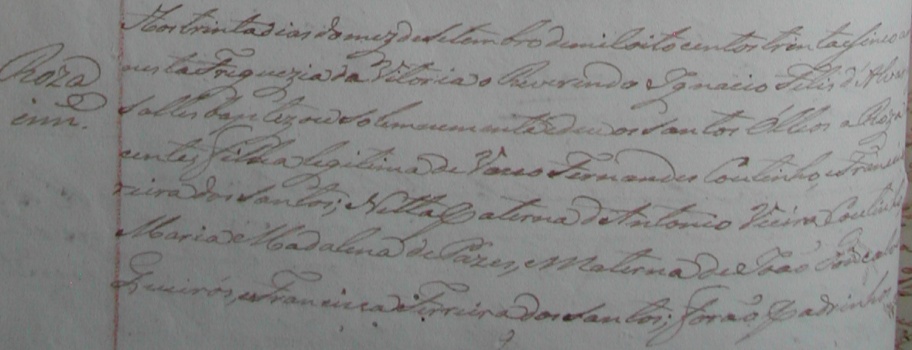 Roza
inn.
Aos trinta dias do mez de Setembro de mil oito centos trinta e sinco
nesta Freguezia da Vitoria o Reverendo Ignacio Felis d'Alvar
Salles baptizou solemnemente e deu os santos Olleos a Roza
cente, filha legitima de Vasco Fernandes Coutinho, e Fran
reira dos Santos; Netta Paterna de Antonio Vieira Coutinho
Maria Madalena de Pazes, e Materna de João Gonçalv
Queirós, e Francisca Ferreira dos Santos; forão Padrinhos